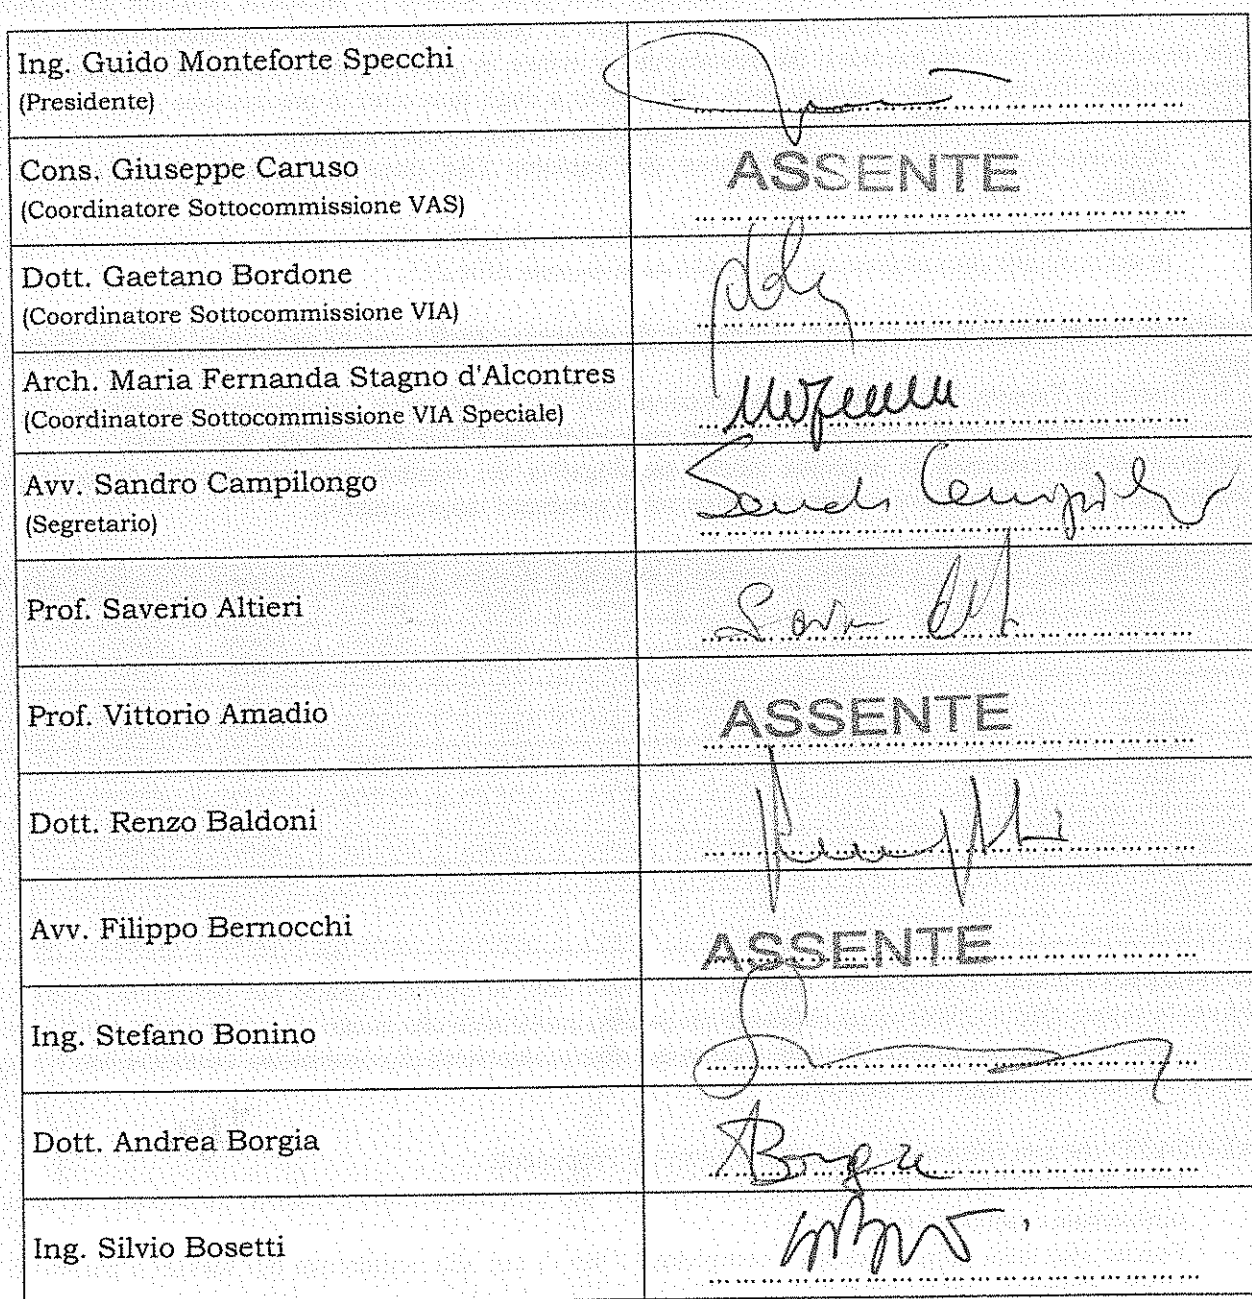 Ing. Guido Monteforte Specchi
(Presidente)
Cons. Giuseppe Caruso
(Coordinatore Sottocommissione VAS)
ASSENTE
Dott. Gaetano Bordone
(Coordinatore Sottocommissione VIA)
Arch. Maria Fernanda Stagno d'Alcontres
(Coordinatore Sottocommissione VIA Speciale)
Avv. Sandro Campilongo
(Segretario)
Prof. Saverio Altieri
Prof. Vittorio Amadio
ASSENTE
Dott. Renzo Baldoni
Avv. Filippo Bernocchi
ASSENTE
Ing. Stefano Bonino
Dott. Andrea Borgia
ABorgia
Ing. Silvio Bosetti